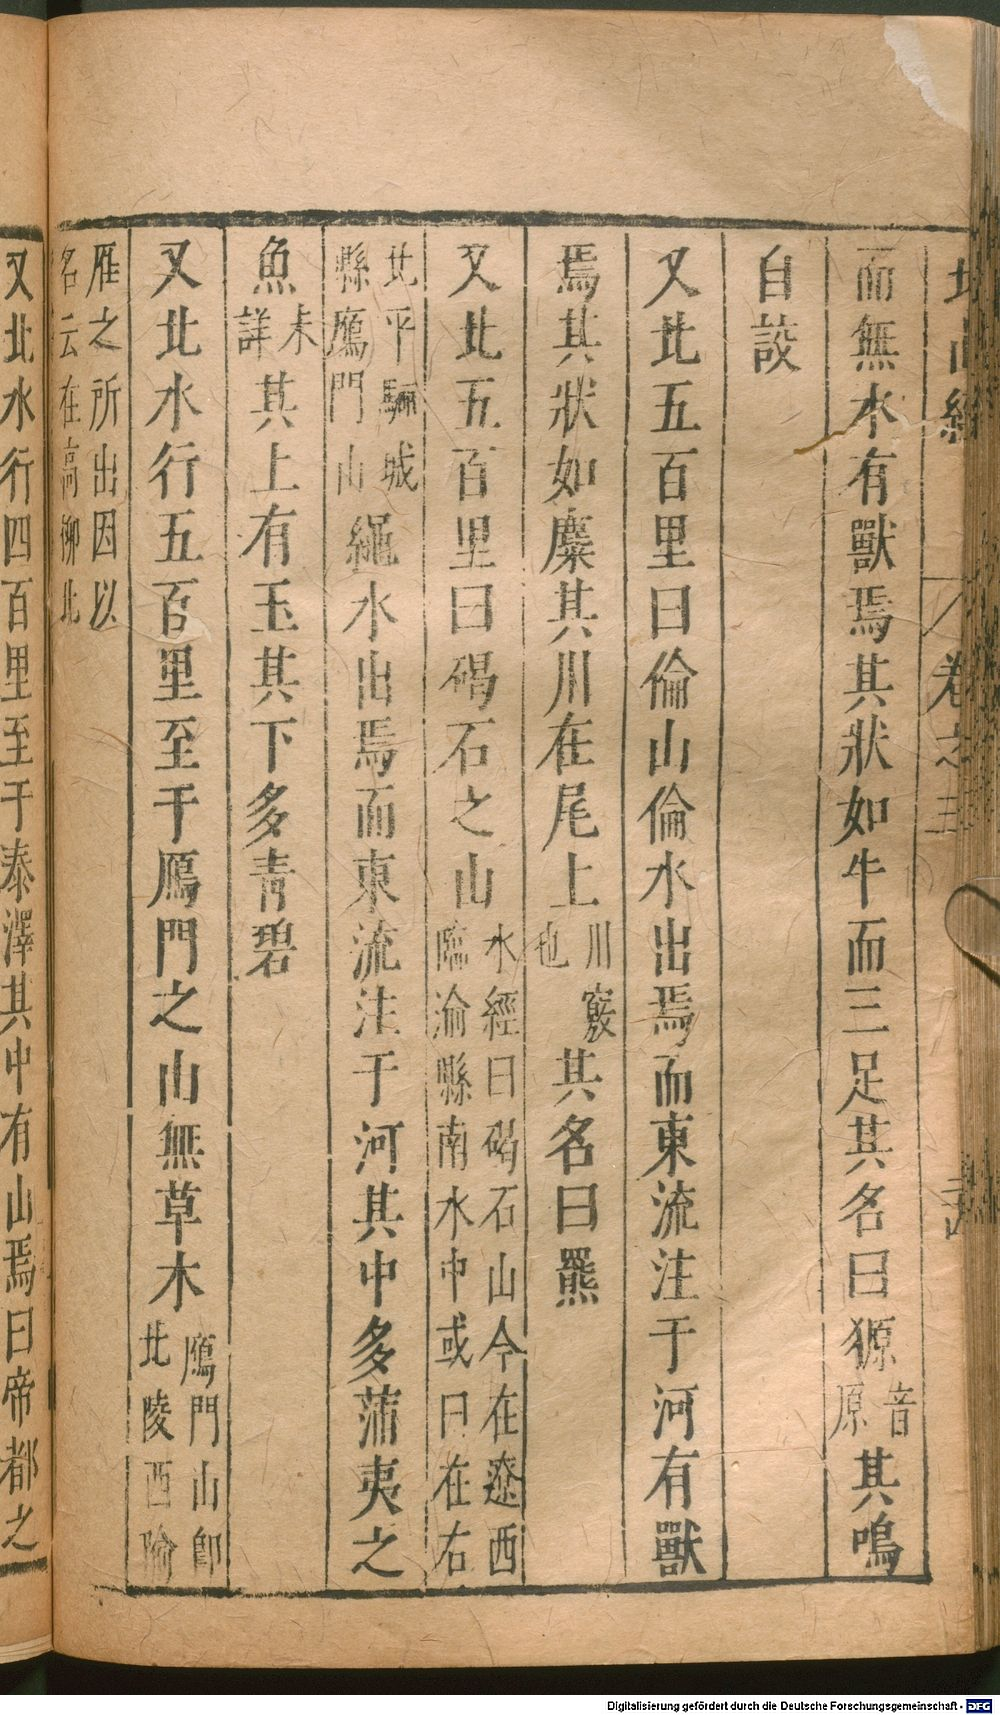 卷之三
而無水有獸焉其狀如牛而三足其名曰獂音原其鳴
自設
又北五百里曰倫山倫水出焉而東流注于河有獸
焉其狀如麋其川在尾上川竅也其名曰羆
又北五百里曰碣石之山水經曰碣石山今在遼西臨渝縣南水中或曰在右
北平驪城縣鴈門山繩水出焉而東流注于河其中多蒲夷之
魚未詳其上有玉其下多青碧
又北水行五百里至于鴈門之山無草木鴈門山卽北陵西隃
雁之所出因以名云在高柳北
又北水行四百里至于泰澤其中有山焉曰帝都之
Digitalisierung gefördert durch die Deutsche Forschungsgemeinschaft - DFG